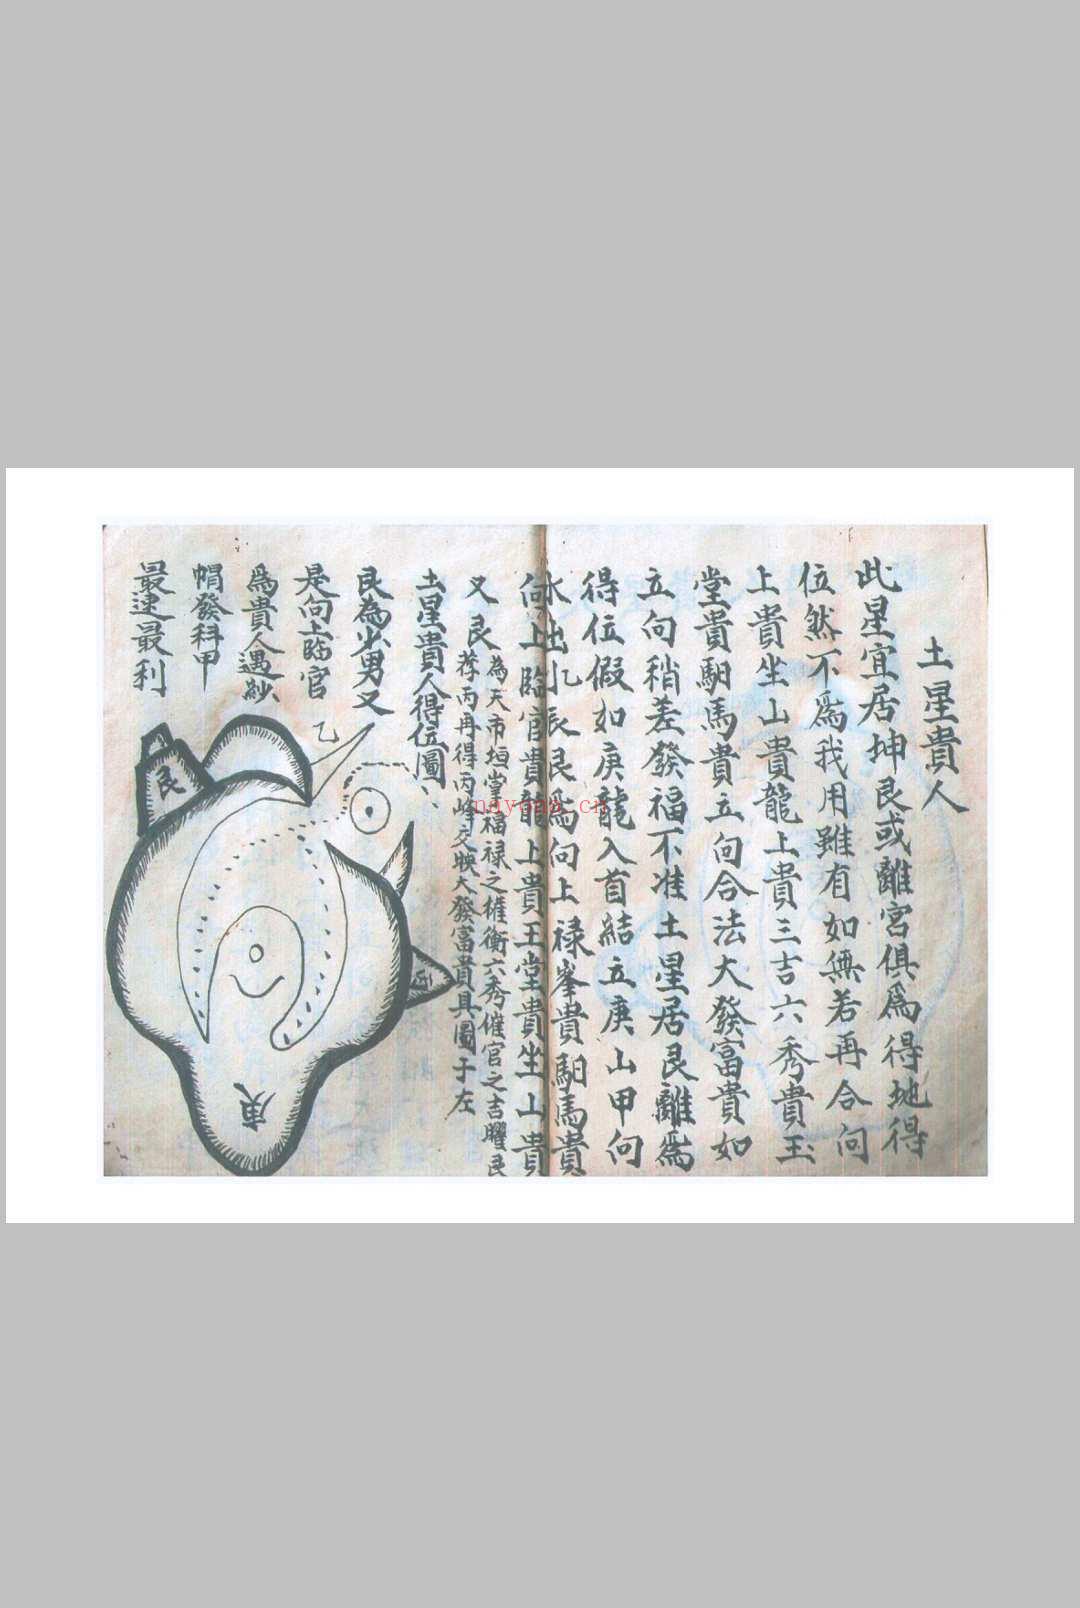 土星貴人
此星宜居坤艮或離宮俱爲得地得
位然不爲我用雖有如無若再合向
上貴坐山貴龍上貴三吉六秀貴玉
堂貴馹馬貴立向合法大發富貴如
立向稍差發福不准土星居艮離爲
得位假如庚龍入首結立庚山甲向
水出乙辰艮爲向上禄峯貴馹馬貴
向上臨官貴龍上貴玉堂貴坐山貴
又艮為天市垣掌福禄之權衡六秀催官之吉曜艮
荐丙再得丙峰交映大發富貴具圖于左
土星貴人得位圖
艮為少男又
是向上臨官
爲貴人遇紗
帽發科甲
最速最利
乙
艮
庚
nayona.cn